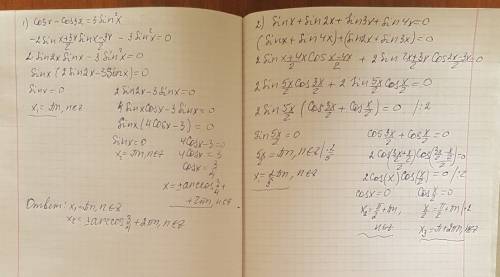 1) cosx - cos3x = 3sin²x
-2 sin (x+3x)/2 sin (x-3x)/2 - 3sin²x = 0
2 sin2x sinx - 3sin²x = 0
sinx (2sin2x - 3sinx) = 0
sinx = 0    2sin2x - 3sinx = 0
x₁ = πn, n∈z    4sinxcosx - 3sinx = 0
sinx (4cosx - 3) = 0
sinx = 0    4cosx - 3 = 0
x₁ = πn, n∈z    4cosx = 3
cosx = 3/4
x = ±arccos 3/4 +
+ 2πn, n∈z
Ответ: x₁ = πn, n∈z
x₂ = ±arccos 3/4 + 2πn, n∈z
2) sinx + sin2x + sin3x + sin4x = 0
(sinx + sin4x) + (sin2x + sin3x) = 0
2 sin (x+4x)/2 cos (x-4x)/2 + 2 sin (2x+3x)/2 cos (2x-3x)/2 = 0
2 sin 5x/2 cos 3x/2 + 2 sin 5x/2 cos x/2 = 0
2 sin 5x/2 (cos 3x/2 + cos x/2) = 0 /:2
sin 5x/2 = 0    cos 3x/2 + cos x/2 = 0
5x/2 = πn, n∈z |·2/5
x = 2/5 πn, n∈z
2cos(x) cos(x/2) = 0 /:2
cosx = 0    cos x/2 = 0
x₂ = π/2 + πn,    x/2 = π/2 + πn |·2
n∈z    x₃ = π + 2πn, n∈z